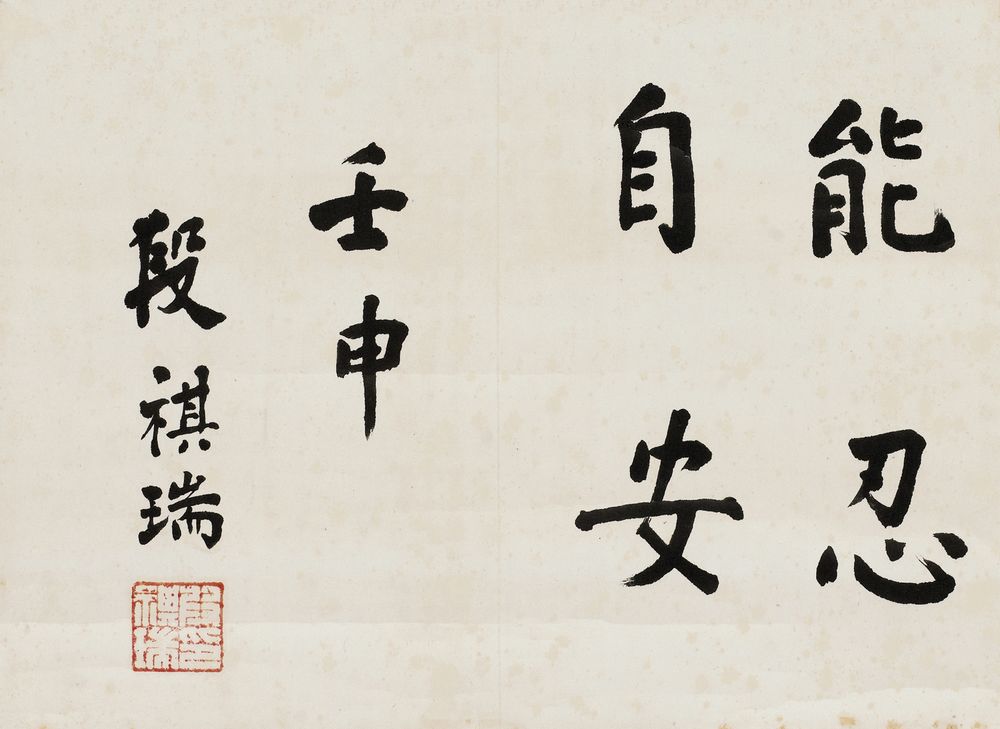 能忍
自安
壬申
段祺瑞
段祺瑞印